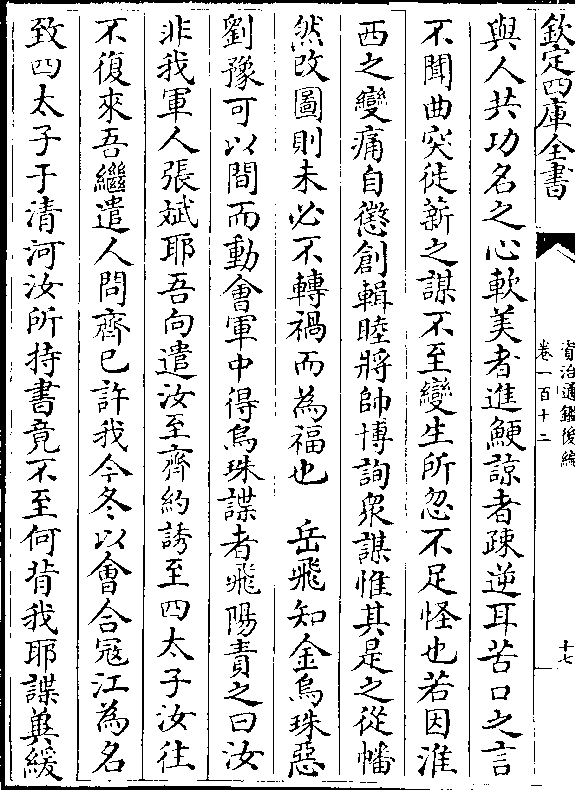 欽定四庫全書
資治通鑑後編
卷一百十二
十七
與人共功名之心軟美者進鯁諒者疎逆耳苦口之言
不聞曲突徙薪之謀不至變生所忽不足怪也若因淮
西之變痛自懲創輯睦將帥博詢衆謀惟其是之從幡
然改圖則未必不轉禍而為福也　岳飛知金烏珠惡
劉豫可以間而動會軍中得烏珠諜者飛陽責之曰汝
非我軍人張斌耶吾向遣汝至齊約誘至四太子汝往
不復來吾繼遣人問齊已許我今冬以會合冦江為名
致四太子于清河汝所持書竟不至何背我耶諜兾緩